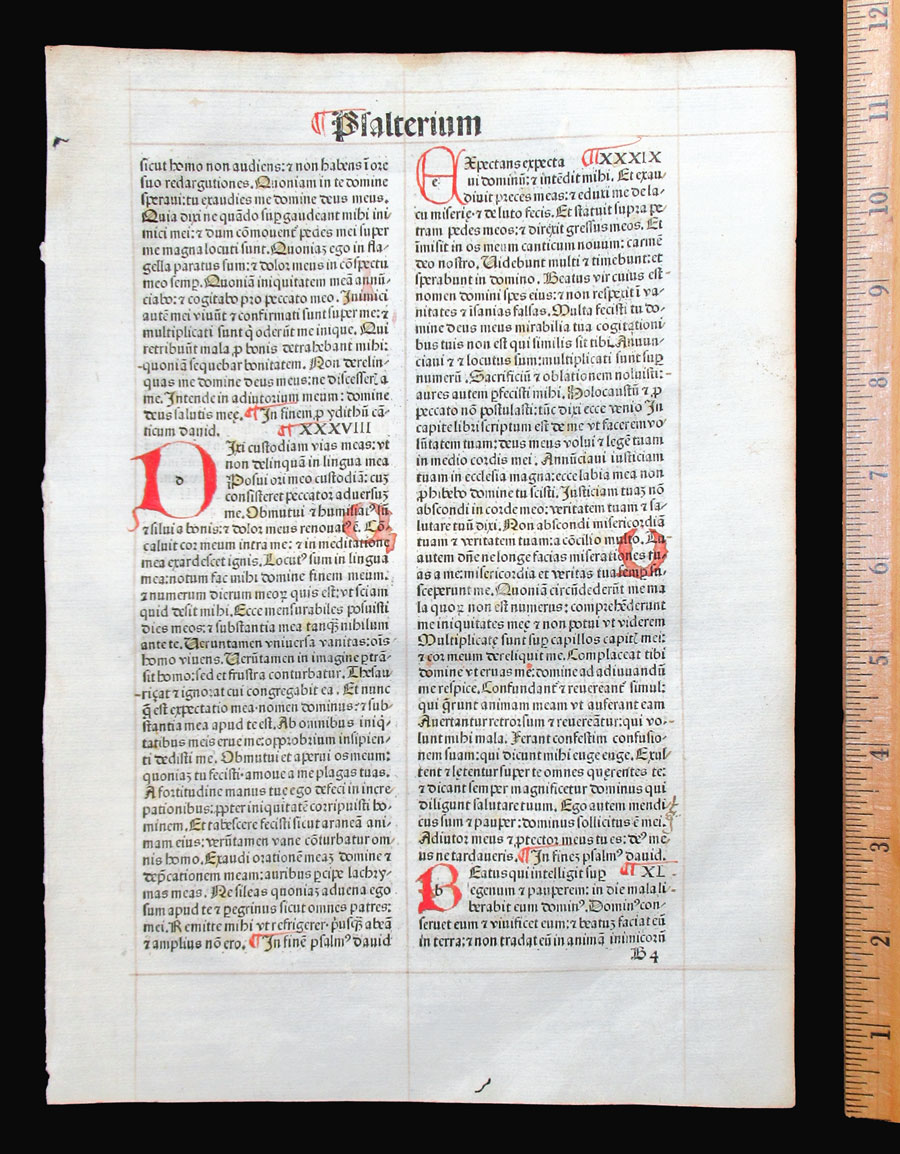 ¶ Psalterium
sicut homo non audiens: ⁊ non habens ī ore
suo redargutiones. Quoniam in te domine
speraui: tu exaudies me domine deus meus.
Quia dixi ne quādo suꝑ gaudeant mihi ini
mici mei: ⁊ dum cōmouent̄ pedes mei super
me magna locuti sunt. Quoniaꝫ ego in fla⸗
gella paratus sum: ⁊ dolor meus in cōspectu
meo semꝑ. Quoniā iniquitatem meā annū⸗
ciabo: ⁊ cogitabo pro peccato meo. Inimici
autē mei viuūt ⁊ confirmati sunt super me: ⁊
multiplicati sunt q̇ oderūt me inique. Qui
retribuūt mala ꝓ bonis detrahebant mihi:
quoniā sequebar bonitatem. Non derelin⸗
quas me domine deus meus: ne discesser̄ a
me. Intende in adiutorium meum: domine
deus salutis meę. ¶ In finem ꝓ ydithū cā⸗
ticum dauid. ¶ XXXVIII
DIxi custodiam vias meas: vt
non delinquā in lingua mea
Posui ori meo custodiā: cuꝫ
consisteret peccator aduersuꝫ
me. Obmutui ⁊ humiliatꝰ sū
⁊ silui a bonis: ⁊ dolor meus renouatꝰ ē. Cō⸗
caluit cor meum intra me: ⁊ in meditatione
mea exardescet ignis. Locutꝰ sum in lingua
mea: notum fac mihi domine finem meum.
⁊ numerum dierum meoꝝ quis est: vt sciam
quid desit mihi. Ecce mensurabiles posuisti
dies meos: ⁊ substantia mea tanqꝫ nihilum
ante te. Veruntamen vniuersa vanitas: oīs
homo viuens. Verūtamen in imagine ꝑtrā⸗
sit homo: sed et frustra conturbatur. Thesau⸗
riçat ⁊ ignorat cui congregabit ea. Et nunc
q̄ est expectatio mea nomen dominus: ⁊ sub⸗
stantia mea apud te est. Ab omnibus iniq̇⸗
tatibus meis erue me: opprobrium insipien⸗
ti dedisti me. Obmutui et aperui os meum:
quoniaꝫ tu fecisti: amoue a me plagas tuas.
A fortitudine manus tue ego defeci in incre
pationibus: ꝓpter iniquitatē corripuisti ho⸗
minem. Et tabescere fecisti sicut araneā ani⸗
mam eius: verūtamen vane cōturbatur om⸗
nis homo. Exaudi orationē meaꝫ domine ⁊
dep̄cationem meam: auribus ꝑcipe lachry⸗
mas meas. Ne sileas quoniaꝫ aduena ego
sum apud te ⁊ ꝑegrinus sicut omnes patres
mei. Remitte mihi vt refrigerer: priusqꝫ abeā
⁊ amplius nō ero. ¶ In finē psalmꝰ dauid
EXpectans expecta ¶ XXXIX
ui dominū: ⁊ intēdit mihi. Et exau⸗
diuit preces meas: ⁊ eduxi me de la⸗
cu miserię ⁊ de luto fecis. Et statuit supra pe⸗
tram pedes meos: ⁊ direxit gressus meos. Et
īmisit in os meum canticum nouum: carmē
deo nostro. Videbunt multi ⁊ timebunt: et
sperabunt in domino. Beatus vir cuius est
nomen domini spes eius: ⁊ non respexit ī va⸗
nitates ⁊ īsanias falsas. Multa fecisti tu do⸗
mine deus meus mirabilia tua cogitationi⸗
bus tuis non est qui similis sit tibi. Annun⸗
ciaui ⁊ ⁊ locutus sum: multiplicati sunt suꝑ
numerū. Sacrificiū ⁊ oblationem noluisti:
aures autem ꝑfecisti mihi. Holocaustū ⁊ ꝓ
peccato nō postulasti: tūc dixi ecce venio In
capite libri scriptum est de me vt facerem vo
lūtatem tuam: deus meus volui ⁊ legē tuam
in medio cordis mei. Annūciaui iusticiam
tuam in ecclesia magna: ecce labia mea non
ꝓhibebo domine tu scisti. Iusticiam tuaꝫ nō
abscondi in corde meo: veritatem tuam ⁊ sa⸗
lutare tuū dixi. Non abscondi misericordiā
tuam ⁊ veritatem tuam: a cōcilio multo. Tu
autem dn̄e ne longe facias miserationes tu⸗
as a me: misericordia et veritas tua semꝑ su⸗
sceperunt me. Quoniā circūdederūt me ma
la quoꝝ non est numerus: comprehēderunt
me iniquitates meę ⁊ non potui vt viderem
Multiplicatę sunt suꝑ capillos capitꝭ mei:
⁊ cor meum dereliquit me. Complaceat tibi
domine vt eruas me: domine ad adiuuandū
me respice. Confundant̄ ⁊ reuereant̄ simul:
qui q̄runt animam meam vt auferant eam
Auertantur retrorsum ⁊ reuereātur: qui vo⸗
lunt mihi mala. Ferant confestim confusio⸗
nem suam: qui dicunt mihi euge euge. Exul⸗
tent ⁊ lętentur super te omnes querentes te:
⁊ dicant semper magnificetur dominus qui
diligunt salutare tuum. Ego autem mendi⸗
cus sum ⁊ pauper: dominus sollicitus ē mei.
Adiutor meus ⁊ ꝓtector meus tu es: deꝰ me⸗
us ne tardaueris. ¶ In fineꝫ psalmꝰ dauid.
BEatus qui intelligit suꝑ ¶ XL
egenum ⁊ pauperem: in die mala li⸗
berabit eum dominꝰ. Dominꝰ con⸗
seruet eum ⁊ viuificet eum: ⁊ beatuꝫ faciat eū
in terra: ⁊ non tradat eū in animā inimicorū
B 4
12
11
10
9
8
7
6
5
4
3
2
1